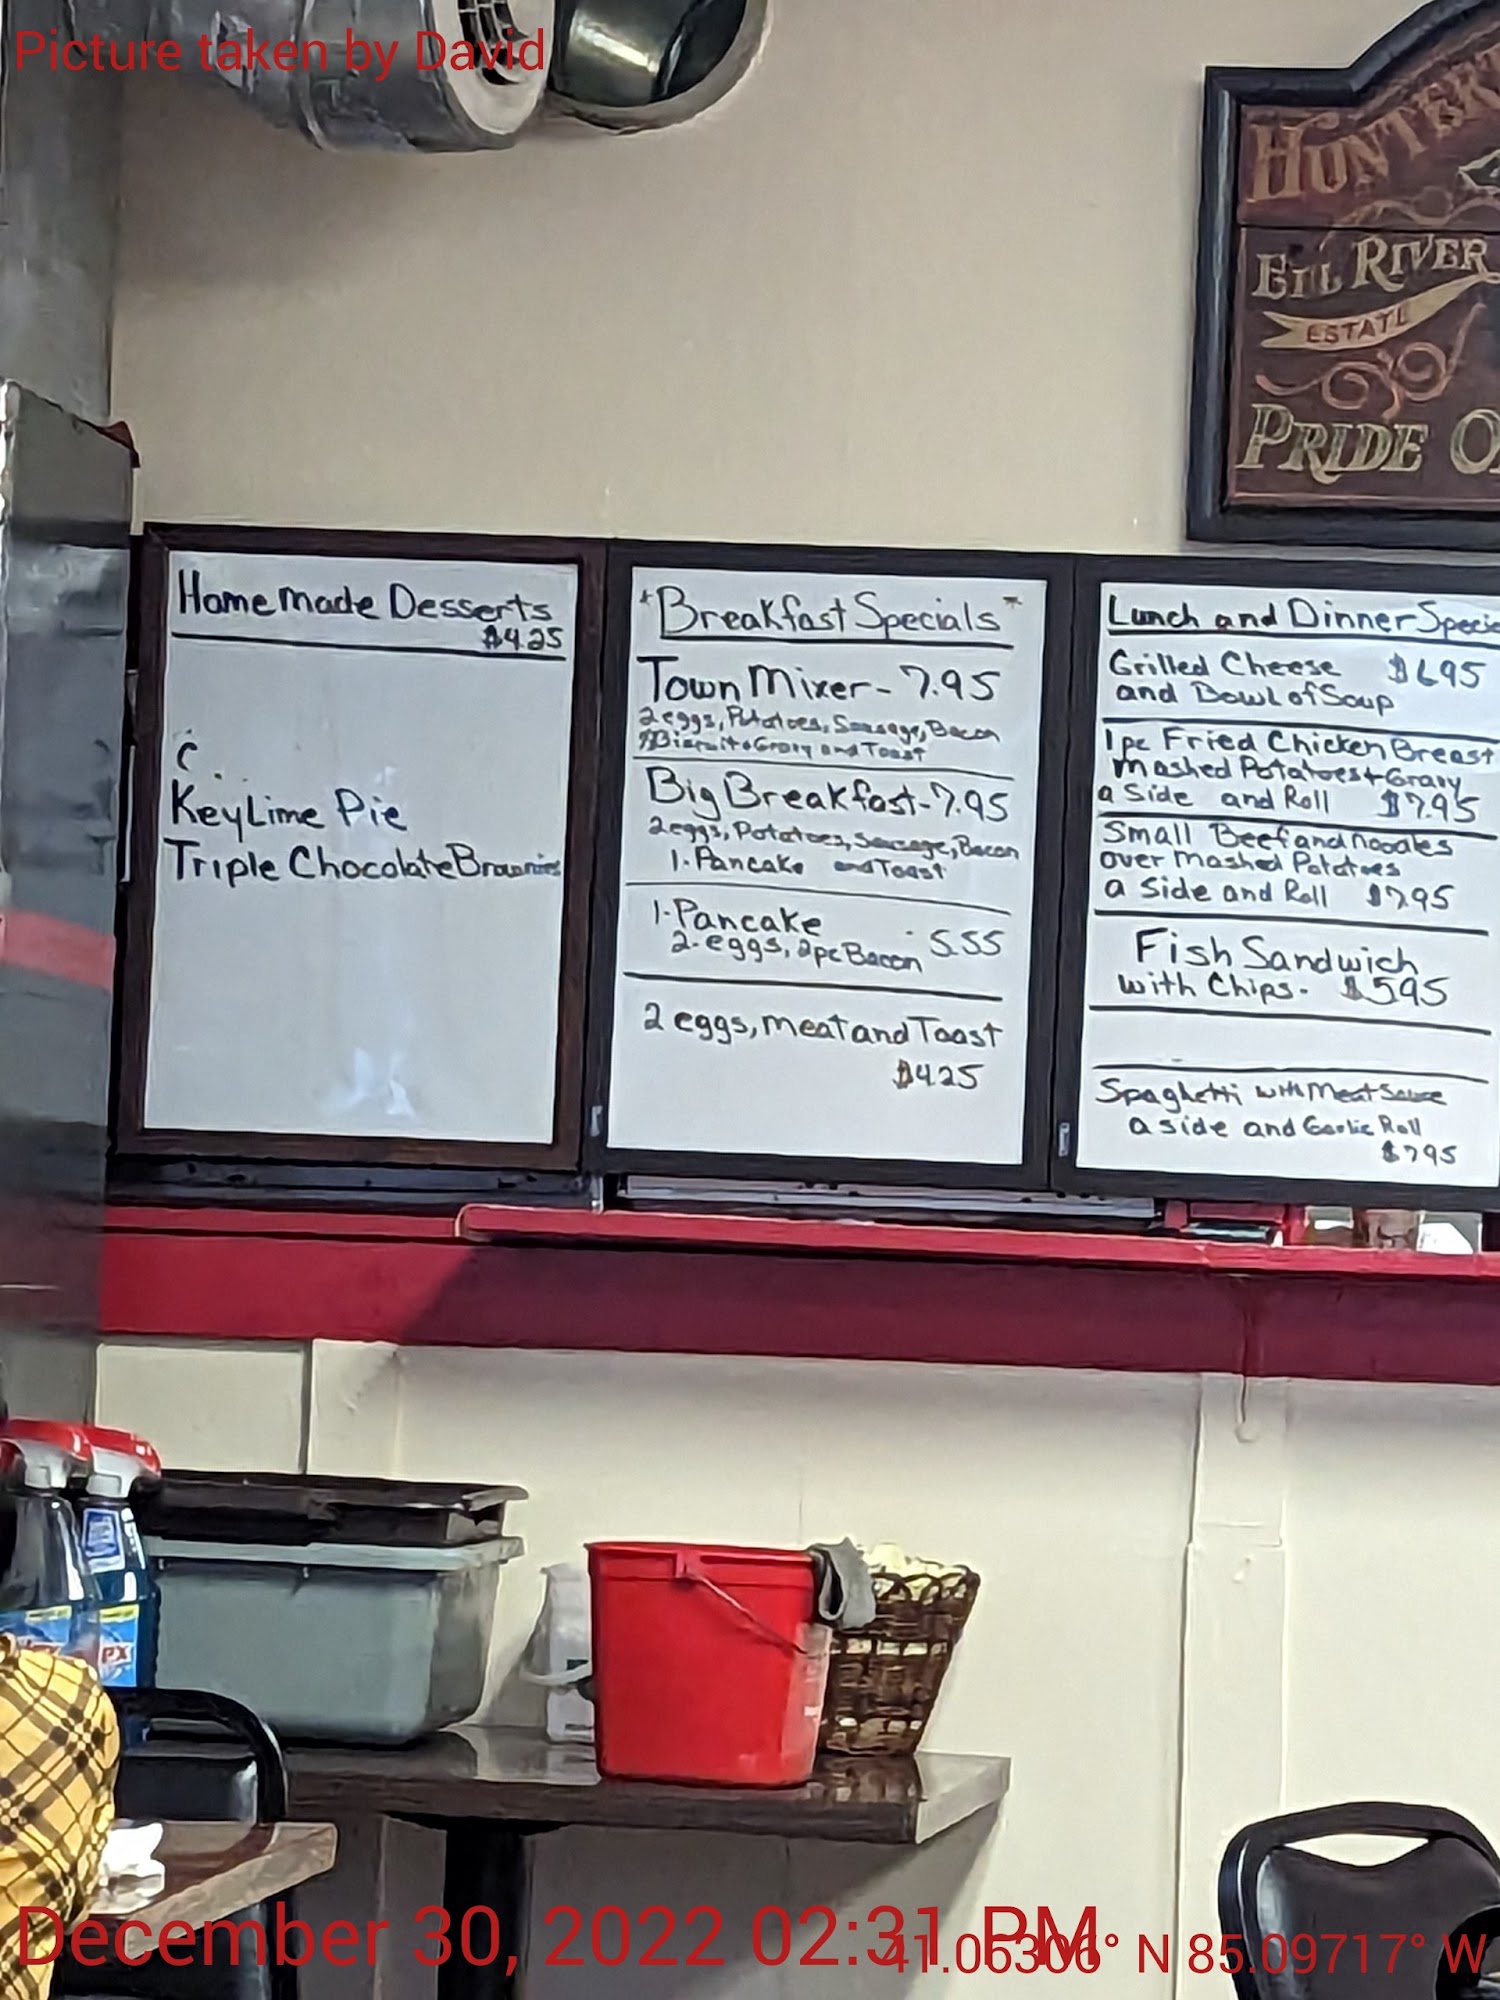 Picture taken by David
HUNTER
EEL RIVER
ESTATE
PRIDE O
Homemade Desserts
$4.25
C
Key Lime Pie
Triple Chocolate Brownies
*Breakfast Specials*
Town Mixer - 7.95
2 eggs, Potatoes, Sausage, Bacon
Biscuit + Gravy and Toast
Big Breakfast - 7.95
2 eggs, Potatoes, Sausage, Bacon
1-Pancake and Toast
1-Pancake
2-eggs, 2pc Bacon 5.55
2 eggs, meat and Toast
$4.25
Lunch and Dinner Specia
Grilled Cheese $6.95
and Bowl of Soup
1pc Fried Chicken Breast
mashed Potatoes + Gravy
a Side and Roll $7.95
Small Beef and noodles
over mashed Potatoes
a Side and Roll $7.95
Fish Sandwich
with Chips. $5.95
Spaghetti with Meat Sauce
a side and Garlic Roll
$7.95
PX
December 30, 2022 02:31 PM
41.06306° N 85.09717° W